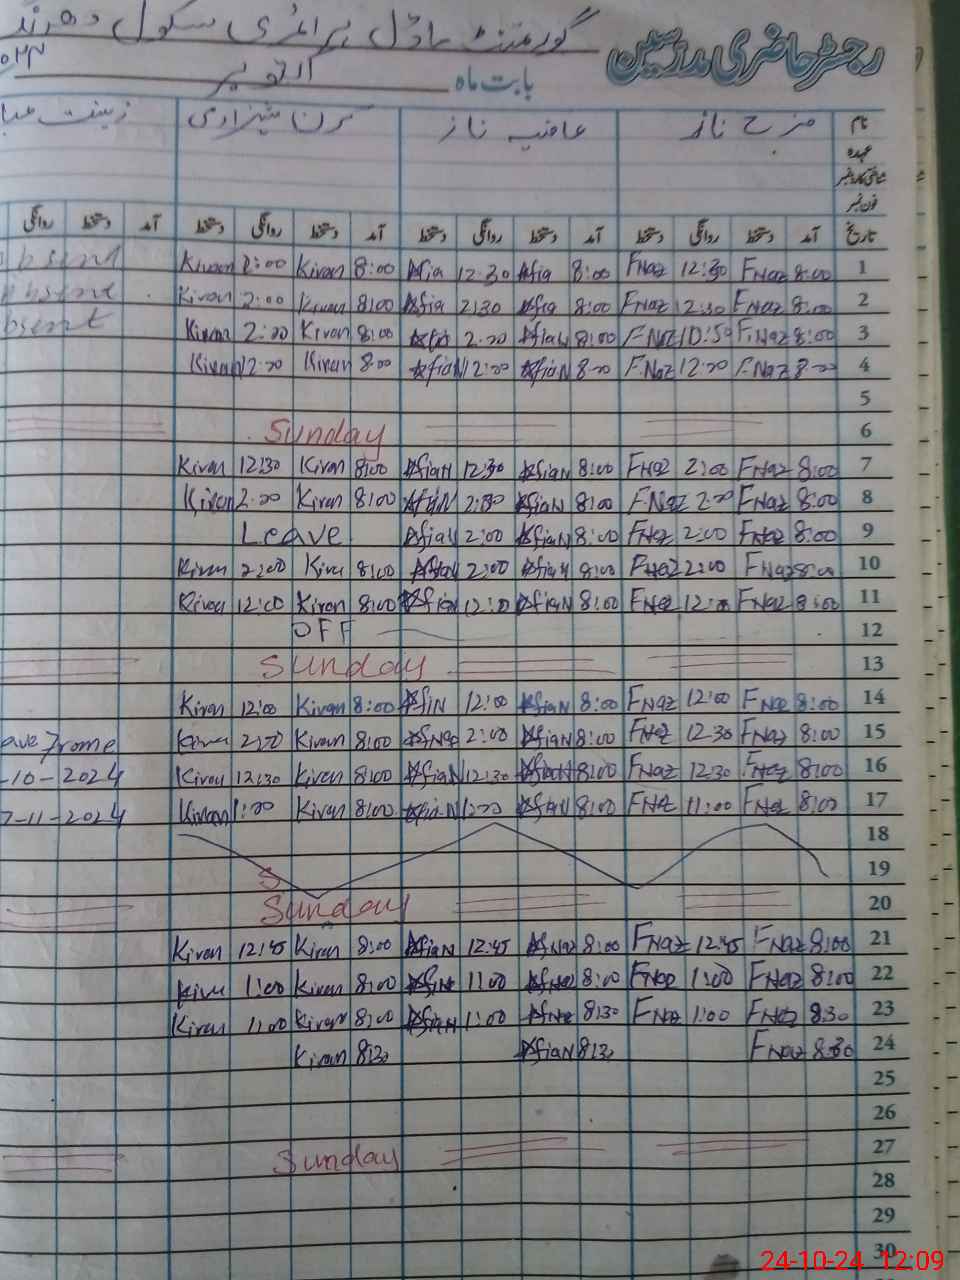 رجسٹر حاضری مدرسین گورنمنٹ ماڈل پرائمری سکول
بابت ماہ اکتوبر
نام فرح ناز عافیہ ناز کرن شہزادی زینت
عہدہ
شناختی کارڈ نمبر
فون نمبر
تاریخ آمد دستخط روانگی دستخط آمد دستخط روانگی دستخط آمد دستخط روانگی دستخط آمد دستخط روانگی
bsent Kiran 2:00 Kiran 8:00 Afia 12:30 Afia 8:00 FNaz 12:30 FNaz 8:00 1
bsent Kiran 2:00 Kiran 8:00 Afia 2:30 Afia 8:00 FNaz 12:30 FNaz 8:00 2
bsent Kiran 2:00 Kiran 8:00 2:00 AfiaN 8:00 FNaz 10:50 F.Naz 8:00 3
Kiran 12:00 Kiran 8:00 AfiaN 12:00 AfiaN 8:00 F.Naz 12:00 F.Naz 8:00 4
5
Sunday 6
Kiran 12:30 Kiran 8:00 AfiaN 12:30 AfiaN 8:00 FNaz 2:00 FNaz 8:00 7
Kiran 2:00 Kiran 8:00 AfiaN 2:00 AfiaN 8:00 FNaz 2:00 FNaz 8:00 8
Leave AfiaN 2:00 AfiaN 8:00 FNaz 2:00 FNaz 8:00 9
Kiran 2:00 Kiran 8:00 AfiaN 2:00 AfiaN 8:00 FNaz 2:00 FNaz 8:00 10
Kiran 12:00 Kiran 8:00 AfiaN 12:00 AfiaN 8:00 FNaz 12:00 FNaz 8:00 11
OFF 12
Sunday 13
Kiran 12:00 Kiran 8:00 AfiN 12:00 AfiaN 8:00 FNaz 12:00 FNaz 8:00 14
ave Frome Kiran 2:00 Kiran 8:00 2:00 AfiaN 8:00 FNaz 12:30 FNaz 8:00 15
-10-2024 Kiran 12:30 Kiran 8:00 AfiaN 12:30 AfiaN 8:00 FNaz 12:30 FNaz 8:00 16
-11-2024 Kiran 1:00 Kiran 8:00 AfiaN 1:00 AfiaN 8:00 FNaz 11:00 FNaz 8:00 17
18
S 19
Sunday 20
Kiran 12:45 Kiran 8:00 AfiaN 12:45 AfNaz 8:00 FNaz 12:45 FNaz 8:00 21
Kiran 1:00 Kiran 8:00 1:00 8:00 FNaz 1:00 FNaz 8:00 22
Kiran 1:00 Kiran 8:00 AfiaN 1:00 8:30 FNaz 1:00 FNaz 8:30 23
Kiran 8:30 AfiaN 8:30 FNaz 8:30 24
25
26
Sunday 27
28
29
30
24-10-24 12:09